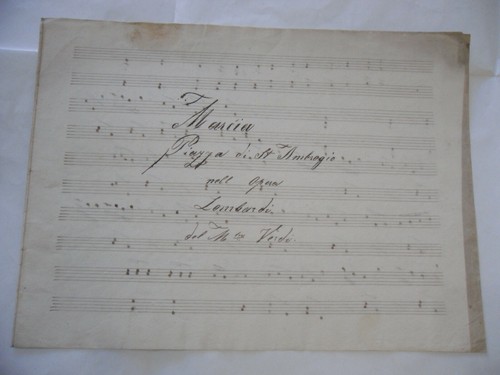 Marcia
Piazza di St Ambrogio
nell' Opera
Lombardi.
del M.tro Verdi.